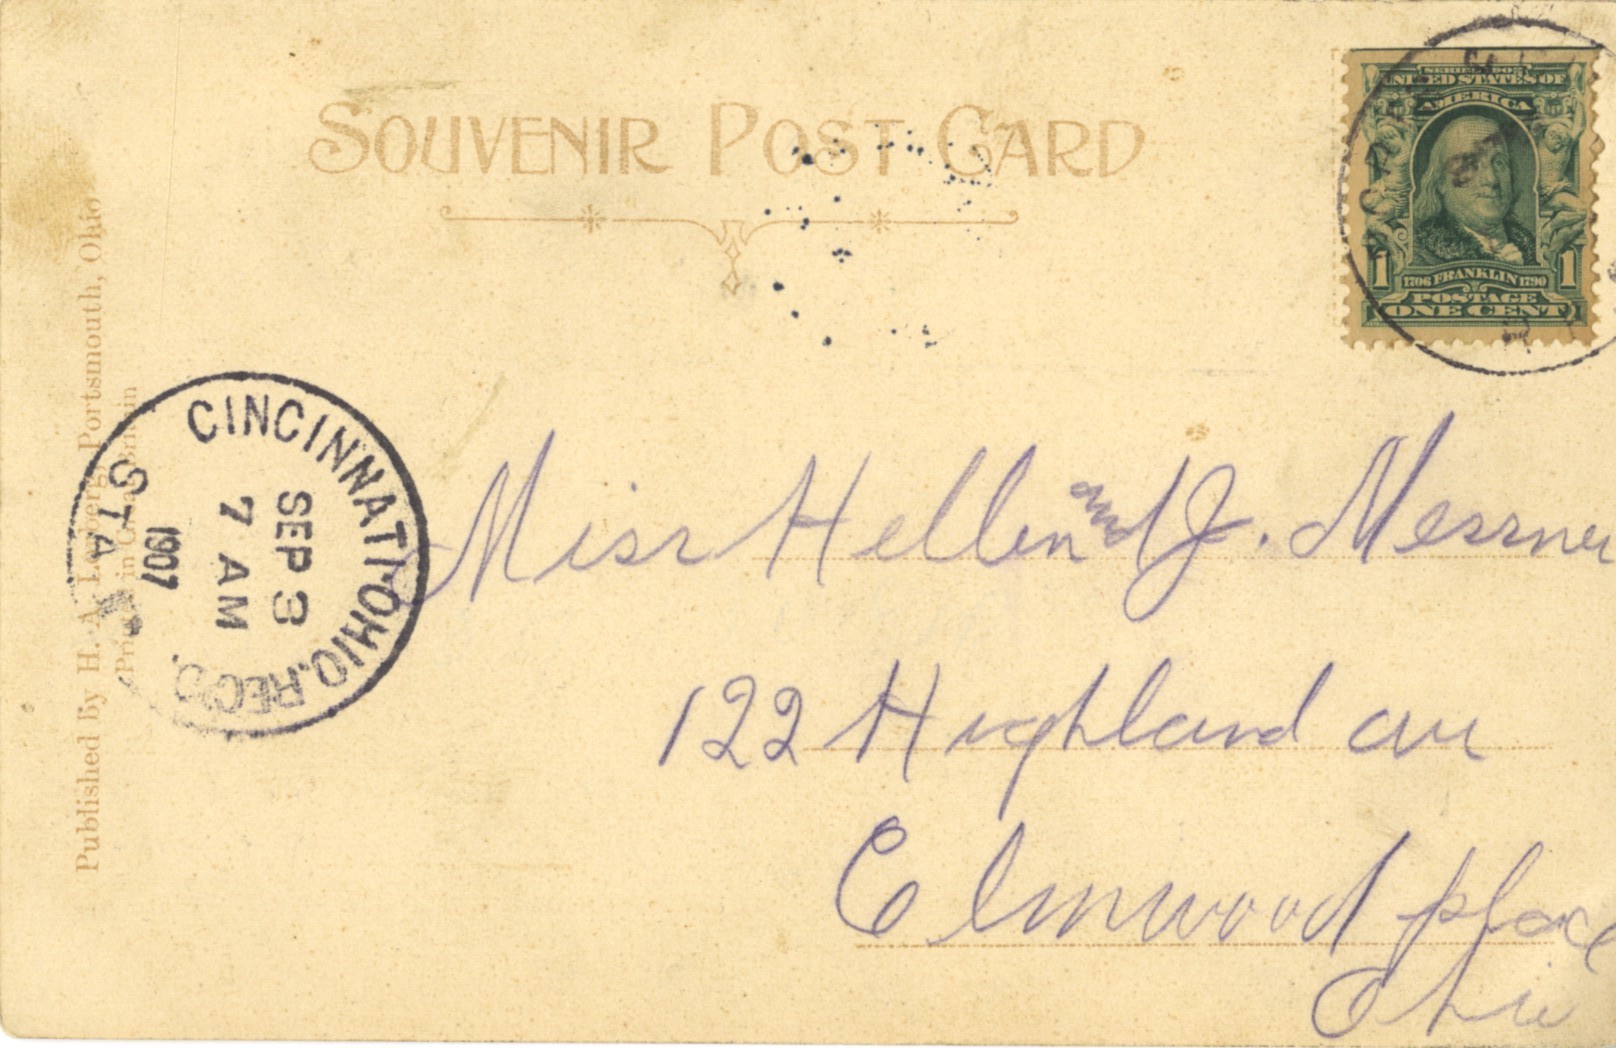 SOUVENIR POST CARD
SERIES 1902
UNITED STATES OF
AMERICA
1 1706 FRANKLIN 1790 1
POSTAGE
ONE CENT
Published by H. A. Portsmouth, Ohio
in
CINCINNATI, OHIO. REC'D.
SEP 3
7 AM
1907
STA
Miss Hellen and J. Messner
122 Highland av
Elmwood place
Ohio